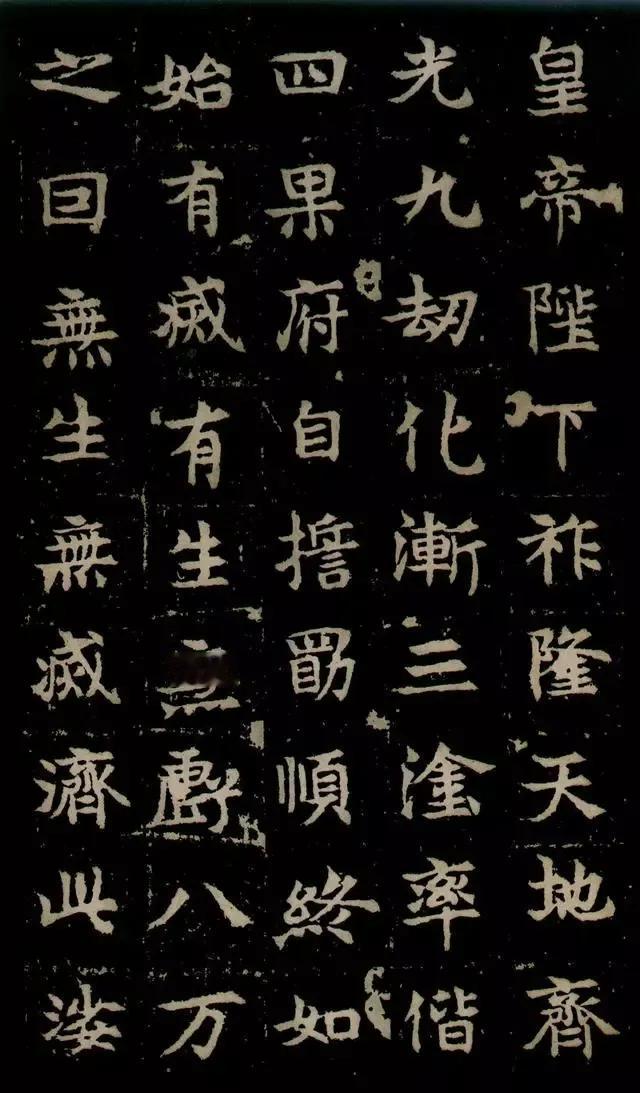 皇帝陛下祚隆天地齊
光九劫化漸三塗率偕
四果府自擔勗順終如
始有滅有生處八万
之曰無生無滅濟此娑